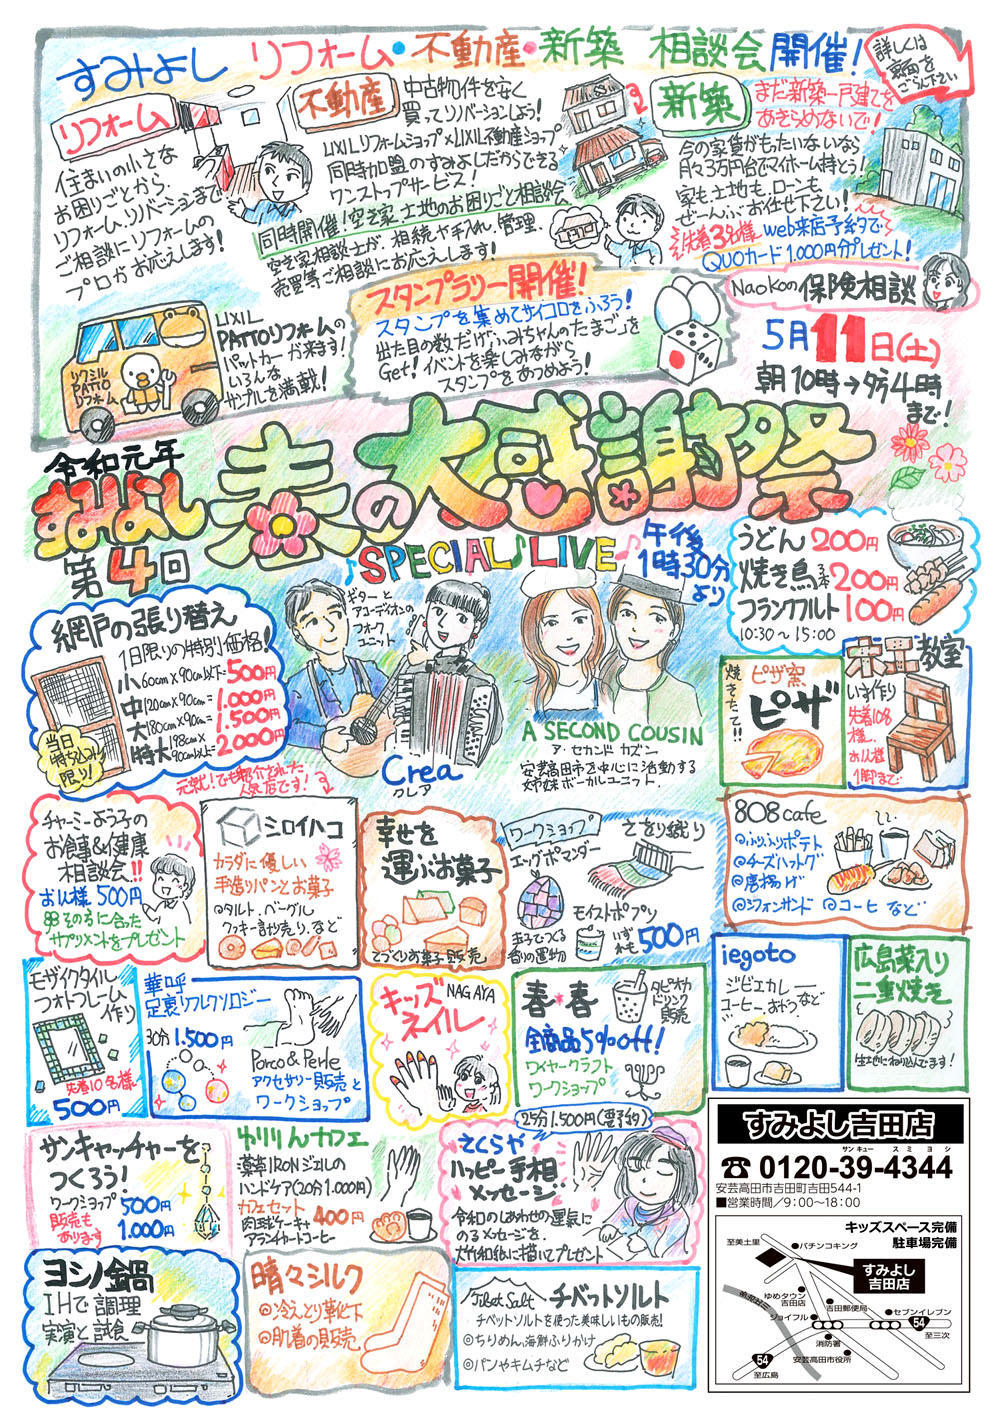 すみよし リフォーム・不動産・新築 相談会開催!
詳しくは
裏面を
ごらん下さい
リフォーム
住まいの小さな
お困りごとから、
リフォーム、リノベーションまで
ご相談にリフォームの
プロがお応えします!
不動産
中古物件を安く
買ってリノベーションしよう!
LIXILリフォームショップ×LIXIL不動産ショップ
同時加盟のすみよしだからできる
ワンストップサービス!
同時開催!空き家、土地のお困りごと相談会
空き家相談士が、相続や手入れ、管理、
売買等ご相談にお応えします!
新築
まだ新築一戸建てを
あきらめないで!
今の家賃がもったいないなら
月々3万円台でマイホーム持とう!
家も、土地も、ローンも
ぜーんぶお任せ下さい!
先着3名様 web来店予約で
QUOカード1,000円分プレゼント!
Naokoの保険相談
LIXIL
PATTOリフォームの
パットカーが来ます!
いろんな
サンプルを満載!
リクシル
PATTO
リフォーム
スタンプラリー開催!
スタンプを集めてサイコロをふろう!
出た目の数だけ「ふみちゃんのたまご」を
Get!イベントを楽しみながら
スタンプをあつめよう!
5月11日(土)
朝10時→夕方4時
まで!
令和元年
すみよし
第4回
春の大感謝祭
SPECIAL♪LIVE
午後
1時30分
より
ギターと
アコーディオンの
フォーク
ユニット
Crea
クレア
A SECOND COUSIN
ア・セカンド カズン
安芸高田市を中心に活動する
姉妹ボーカルユニット.
うどん 200円
焼き鳥 3本 200円
フランクフルト 100円
10:30～15:00
網戸の張り替え
1日限りの特別価格!
小 60cm×90cm以下=500円
中 120cm×90cm=1,000円
大 180cm×90cm=1,500円
特大 198cm×90cm以上=2000円
当日
持ち込み
限り!
焼きたて!!
ピザ窯
ピザ
木工教室
いす作り
先着10名
様、
お1人様
1脚まで
元就!でも紹介された
人気店です!
チャーミーよう子の
お食事&健康
相談会!!
お1人様 500円
その方に合った
サプリメントをプレゼント
シロイハコ
カラダに優しい
手造りパンとお菓子
◎タルト、ベーグル
クッキー計り売り、など
幸せを
運ぶお菓子
てづくりお菓子販売
ワークショップ さをり織り
エッグポマンダー
玉子でつくる
香りの置物
モイストポプリ
いずれも 500円
808cafe
◎ふりふりポテト
◎チーズハットグ
◎唐揚げ
◎シフォンサンド ◎コーヒー など
モザイクタイル
フォトフレーム
作り
先着10名様
500円
華呼
足裏リフレクソロジー
30分 1,500円
Porco & Perle
アクセサリー販売と
ワークショップ
キッズ
ネイル
NAGAYA
春*春
タピオカ
ドリンク
販売
全商品5%off!
ワイヤークラフト
ワークショップ
iegoto
ジビエカレー
コーヒー おやつなど
広島菜入り
二重焼き
生地にねり込んでます!
サンキャッチャーを
つくろう!
ワークショップ 500円
販売も
あります 1,000円
ゆりりんカフェ
薬草IRONジェルの
ハンドケア(20分1,000円)
カフェセット
肉球ケーキ+
アランチャートコーヒー
400円
25分1,500円(要予約)
さくらや
ハッピー手相
メッセージ
令和のしあわせの運気に
のるメッセージを、
大竹和紙に描いてプレゼント
ヨシノ鍋
IHで調理
実演と試食
晴々シルク
◎冷えとり靴下
◎肌着の販売
Tibet Salt チベットソルト
チベットソルトを使った美味しいもの販売!
◎ちりめん、海鮮ふりかけ
◎パンやキムチなど
すみよし吉田店
サンキュー スミヨシ
0120-39-4344
安芸高田市吉田町吉田544-1
■営業時間/9:00～18:00
キッズスペース完備
駐車場完備
至美土里
パチンコキング
すみよし
吉田店
ゆめタウン
吉田店
吉田郵便局
ジョイフル
セブンイレブン
54
至三次
消防署
安芸高田市役所
54
至広島